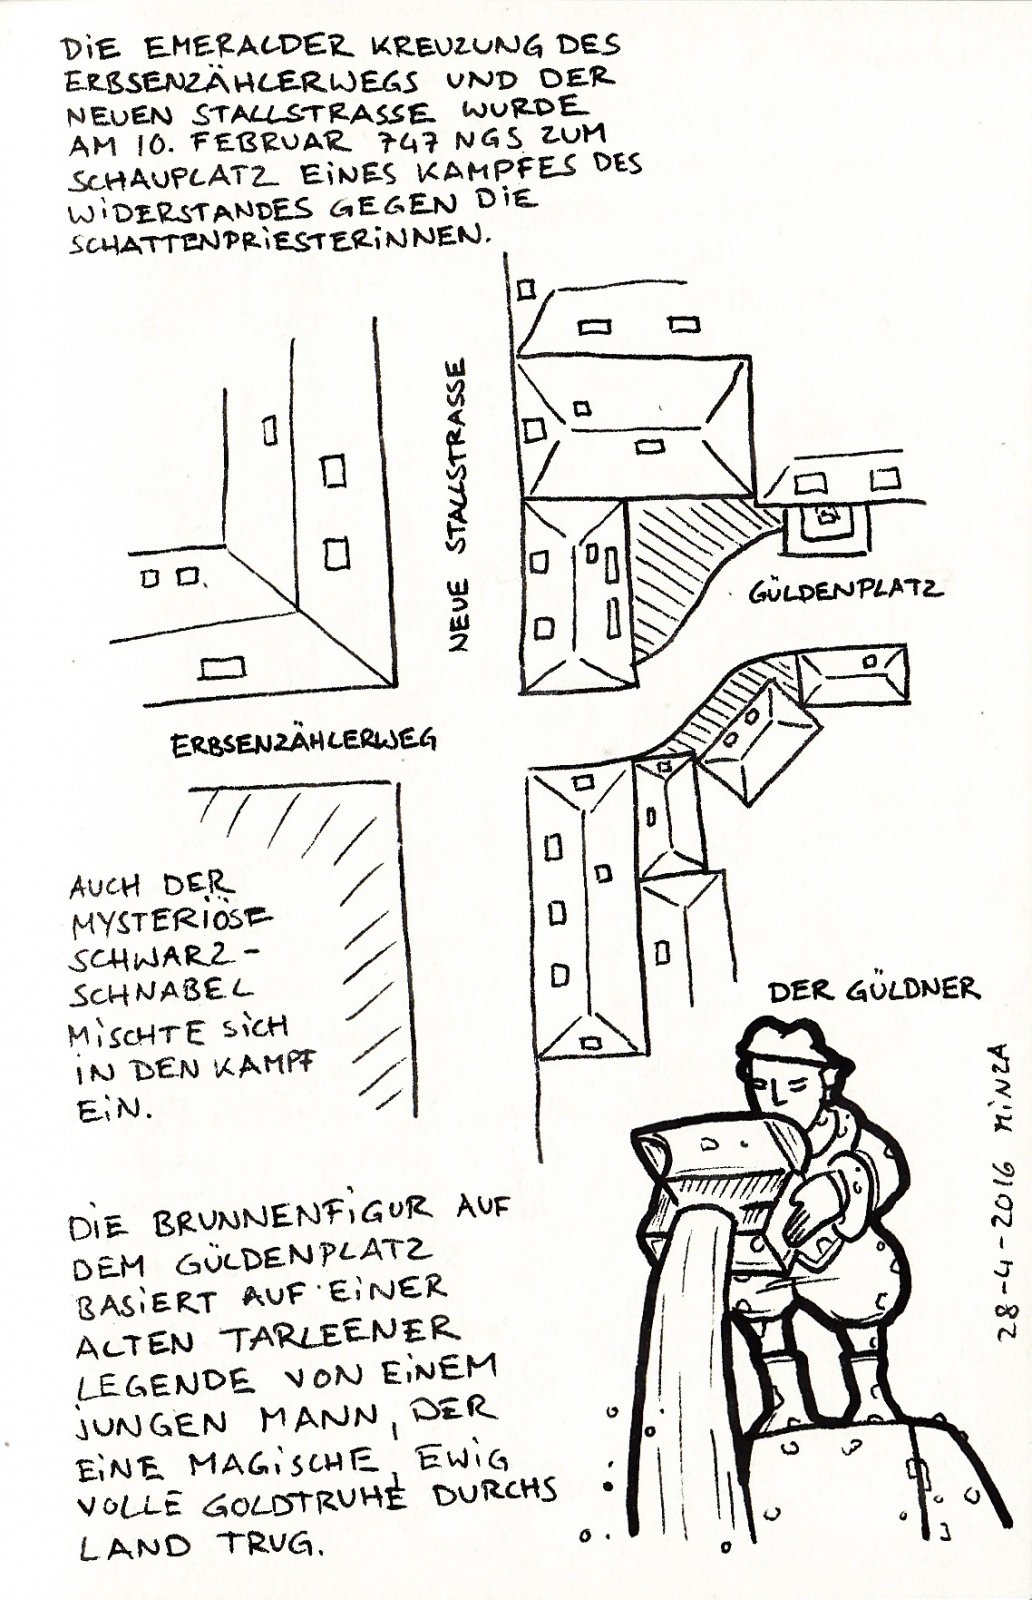 DIE EMERALDER KREUZUNG DES
ERBSENZÄHLERWEGS UND DER
NEUEN STALLSTRASSE WURDE
AM 10. FEBRUAR 747 NGS ZUM
SCHAUPLATZ EINES KAMPFES DES
WIDERSTANDES GEGEN DIE
SCHATTENPRIESTERINNEN.
NEUE STALLSTRASSE
GÜLDENPLATZ
ERBSENZÄHLERWEG
AUCH DER
MYSTERIÖSE
SCHWARZ-
SCHNABEL
MISCHTE SICH
IN DEN KAMPF
EIN.
DER GÜLDNER
DIE BRUNNENFIGUR AUF
DEM GÜLDENPLATZ
BASIERT AUF EINER
ALTEN TARLEENER
LEGENDE VON EINEM
JUNGEN MANN, DER
EINE MAGISCHE, EWIG
VOLLE GOLDTRUHE DURCHS
LAND TRUG.
28-4-2016 MINZA